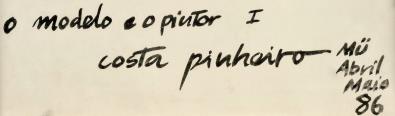 o modelo e o pintor I
costa pinheiro
Mü
Abril
Maio
86